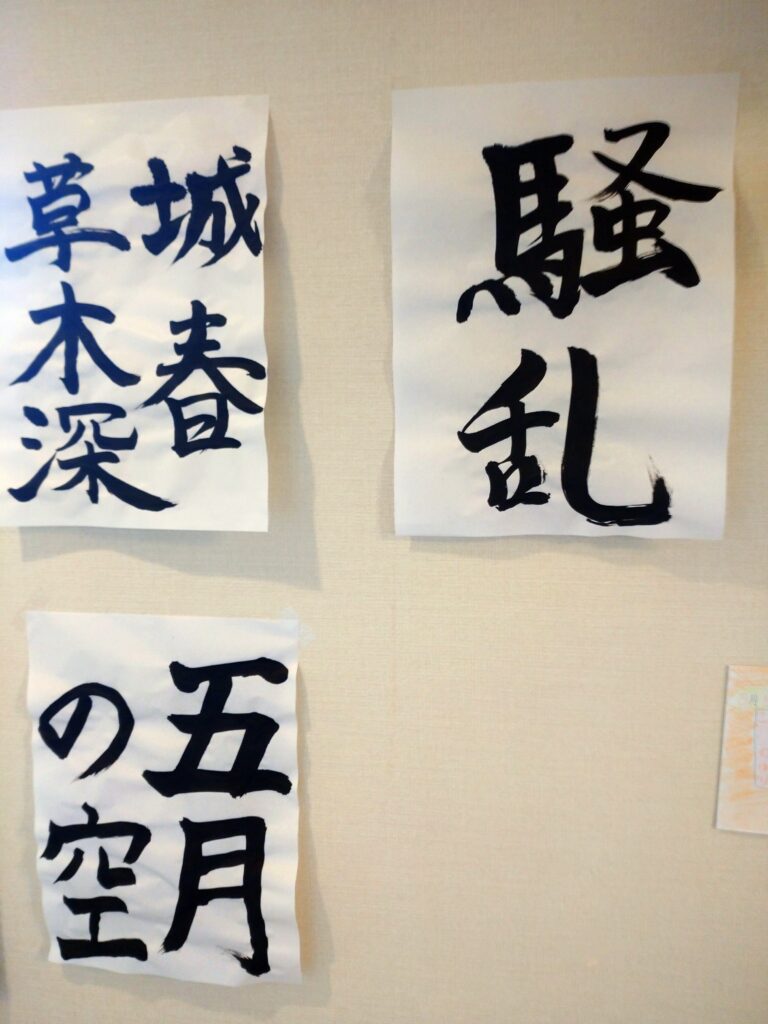 騒乱
城春
草木深
五月
の空